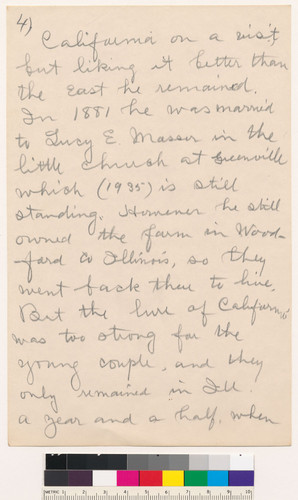 4)
California on a visit,
but liking it better than
the East he remained.
In 1881 he was married
to Lucy E. Masser in the
little church at Greenville
which (1935) is still
standing. However he still
owned the farm in Wood-
-ford Co Illinois, so they
went back there to live.
But the lure of California
was too strong for the
young couple, and they
only remained in Ill.
a year and a half, when